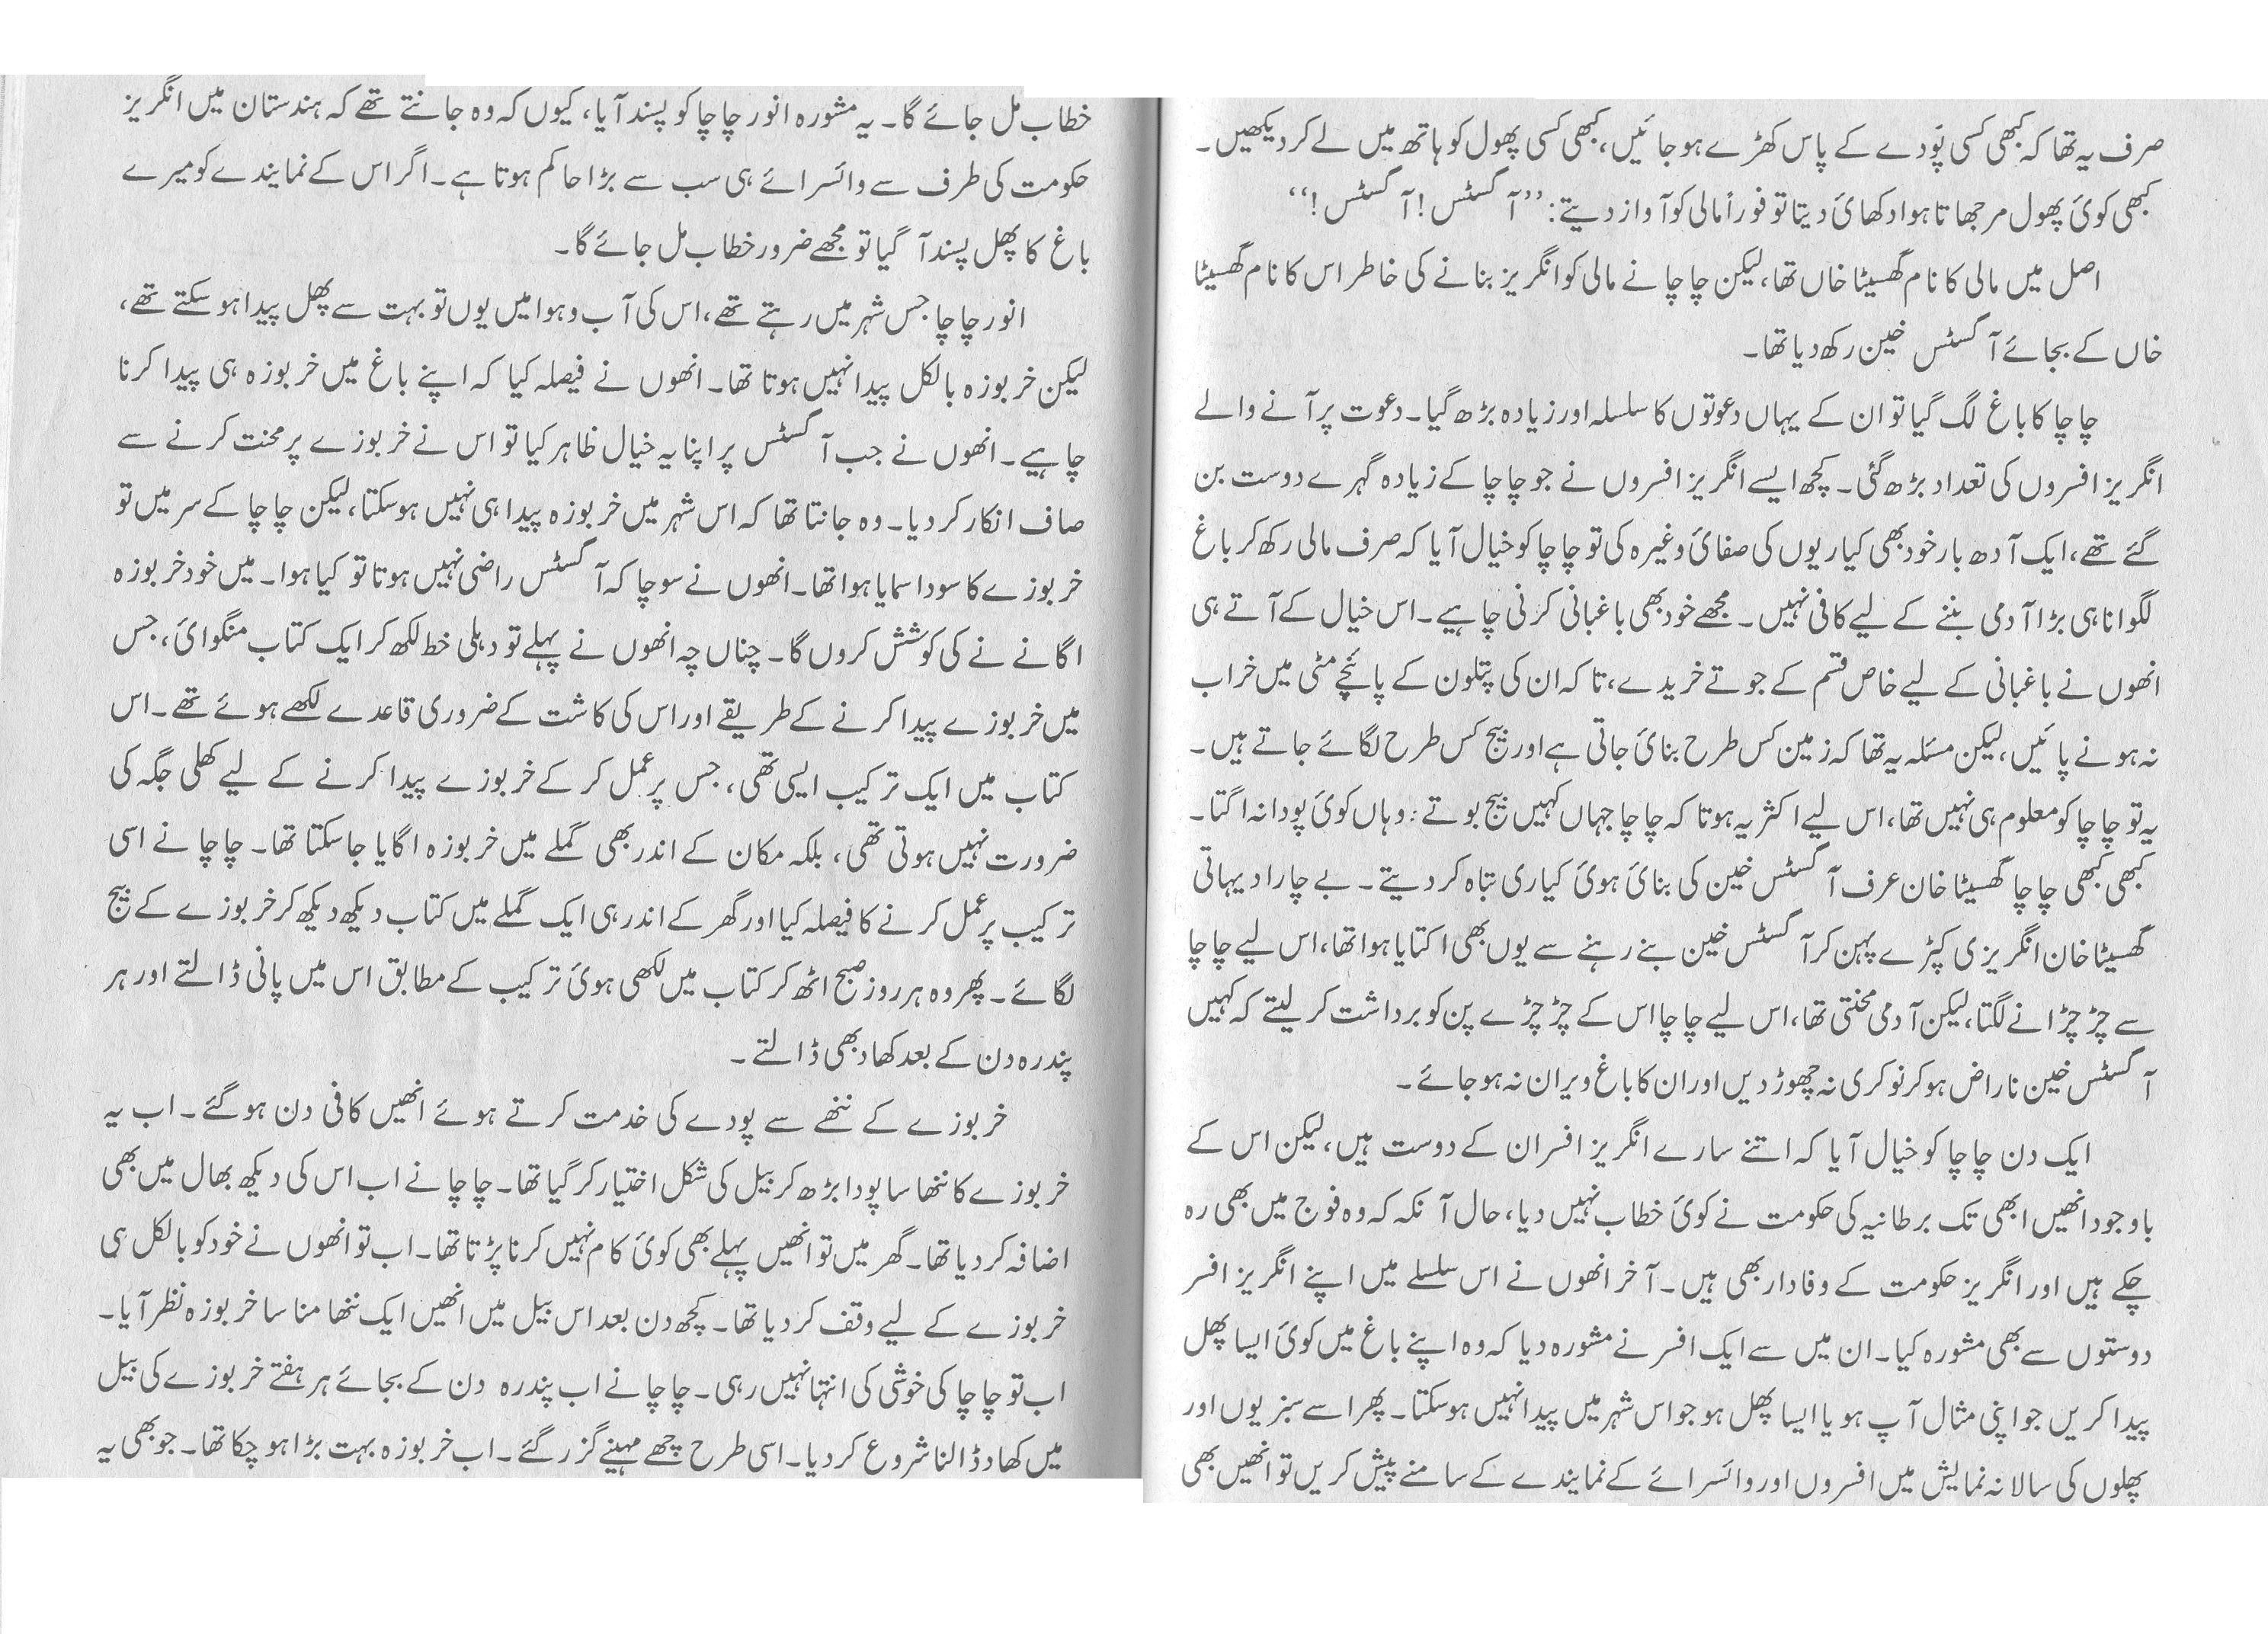 صرف یہ تھا کہ کبھی کسی پَودے کے پاس کھڑے ہو جائیں، کبھی کسی پھول کو ہاتھ میں لے کر دیکھیں۔
کبھی کوئی پھول مرجھاتا ہوا دکھائی دیتا تو فوراً مالی کو آواز دیتے: ’’آگسٹس! آگسٹس!‘‘
اصل میں مالی کا نام گھسیٹا خاں تھا، لیکن چاچا نے مالی کو انگریز بنانے کی خاطر اس کا نام گھسیٹا
خاں کے بجائے آگسٹس خین رکھ دیا تھا۔
چاچا کا باغ لگ گیا تو ان کے یہاں دعوتوں کا سلسلہ اور زیادہ بڑھ گیا۔ دعوت پر آنے والے
انگریز افسروں کی تعداد بڑھ گئی۔ کچھ ایسے انگریز افسروں نے جو چاچا کے زیادہ گہرے دوست بن
گئے تھے، ایک آدھ بار خود بھی کیاریوں کی صفائی وغیرہ کی تو چاچا کو خیال آیا کہ صرف مالی رکھ کر باغ
لگوانا ہی بڑا آدمی بننے کے لیے کافی نہیں۔ مجھے خود بھی باغبانی کرنی چاہیے۔ اس خیال کے آتے ہی
انھوں نے باغبانی کے لیے خاص قسم کے جوتے خریدے، تاکہ ان کی پتلون کے پائنچے مٹی میں خراب
نہ ہونے پائیں، لیکن مسئلہ یہ تھا کہ زمین کس طرح بنائی جاتی ہے اور بیج کس طرح لگائے جاتے ہیں۔
یہ تو چاچا کو معلوم ہی نہیں تھا، اس لیے اکثر یہ ہوتا کہ چاچا جہاں کہیں بیج بوتے: وہاں کوئی پودا نہ اگتا۔
کبھی کبھی چاچا گھسیٹا خان عرف آگسٹس خین کی بنائی ہوئی کیاری تباہ کر دیتے۔ بے چارا دیہاتی
گھسیٹا خان انگریزی کپڑے پہن کر آگسٹس خین بنے رہنے سے یوں بھی اکتایا ہوا تھا، اس لیے چاچا
سے چڑچڑانے لگتا، لیکن آدمی محنتی تھا، اس لیے چاچا اس کے چڑچڑے پن کو برداشت کر لیتے کہ کہیں
آگسٹس خین ناراض ہو کر نوکری نہ چھوڑ دیں اور ان کا باغ ویران نہ ہو جائے۔
ایک دن چاچا کو خیال آیا کہ اتنے سارے انگریز افسر ان کے دوست ہیں، لیکن اس کے
باوجود انھیں ابھی تک برطانیہ کی حکومت نے کوئی خطاب نہیں دیا، حال آنکہ کہ وہ فوج میں بھی رہ
چکے ہیں اور انگریز حکومت کے وفادار بھی ہیں۔ آخر انھوں نے اس سلسلے میں اپنے انگریز افسر
دوستوں سے بھی مشورہ کیا۔ ان میں سے ایک افسر نے مشورہ دیا کہ وہ اپنے باغ میں کوئی ایسا پھل
پیدا کریں جو اپنی مثال آپ ہو یا ایسا پھل ہو جو اس شہر میں پیدا نہیں ہو سکتا۔ پھر اسے سبزیوں اور
پھلوں کی سالانہ نمایش میں افسروں اور وائسرائے کے نمایندے کے سامنے پیش کریں تو انھیں بھی
خطاب مل جائے گا۔ یہ مشورہ انور چاچا کو پسند آیا، کیوں کہ وہ جانتے تھے کہ ہندستان میں انگریز
حکومت کی طرف سے وائسرائے ہی سب سے بڑا حاکم ہوتا ہے۔ اگر اس کے نمایندے کو میرے
باغ کا پھل پسند آ گیا تو مجھے ضرور خطاب مل جائے گا۔
انور چاچا جس شہر میں رہتے تھے، اس کی آب و ہوا میں یوں تو بہت سے پھل پیدا ہو سکتے تھے،
لیکن خربوزہ بالکل پیدا نہیں ہوتا تھا۔ انھوں نے فیصلہ کیا کہ اپنے باغ میں خربوزہ ہی پیدا کرنا
چاہیے۔ انھوں نے جب آگسٹس پر اپنا یہ خیال ظاہر کیا تو اس نے خربوزے پر محنت کرنے سے
صاف انکار کر دیا۔ وہ جانتا تھا کہ اس شہر میں خربوزہ پیدا ہی نہیں ہو سکتا، لیکن چاچا کے سر میں تو
خربوزے کا سودا سمایا ہوا تھا۔ انھوں نے سوچا کہ آگسٹس راضی نہیں ہوتا تو کیا ہوا۔ میں خود خربوزہ
اگانے نے کی کوشش کروں گا۔ چناں چہ انھوں نے پہلے تو دہلی خط لکھ کر ایک کتاب منگوائی، جس
میں خربوزے پیدا کرنے کے طریقے اور اس کی کاشت کے ضروری قاعدے لکھے ہوئے تھے۔ اس
کتاب میں ایک ترکیب ایسی تھی، جس پر عمل کر کے خربوزے پیدا کرنے کے لیے کھلی جگہ کی
ضرورت نہیں ہوتی تھی، بلکہ مکان کے اندر بھی گملے میں خربوزہ اگایا جا سکتا تھا۔ چاچا نے اسی
ترکیب پر عمل کرنے کا فیصلہ کیا اور گھر کے اندر ہی ایک گملے میں کتاب دیکھ دیکھ کر خربوزے کے بیج
لگائے۔ پھر وہ ہر روز صبح اٹھ کر کتاب میں لکھی ہوئی ترکیب کے مطابق اس میں پانی ڈالتے اور ہر
پندرہ دن کے بعد کھاد بھی ڈالتے۔
خربوزے کے ننھے سے پودے کی خدمت کرتے ہوئے انھیں کافی دن ہو گئے۔ اب یہ
خربوزے کا ننھا سا پودا بڑھ کر بیل کی شکل اختیار کر گیا تھا۔ چاچا نے اب اس کی دیکھ بھال میں بھی
اضافہ کر دیا تھا۔ گھر میں تو انھیں پہلے بھی کوئی کام نہیں کرنا پڑتا تھا۔ اب تو انھوں نے خود کو بالکل ہی
خربوزے کے لیے وقف کر دیا تھا۔ کچھ دن بعد اس بیل میں انھیں ایک ننھا منا سا خربوزہ نظر آیا۔
اب تو چاچا کی خوشی کی انتہا نہیں رہی۔ چاچا نے اب پندرہ دن کے بجائے ہر ہفتے خربوزے کی بیل
میں کھاد ڈالنا شروع کر دیا۔ اسی طرح چھے مہینے گزر گئے۔ اب خربوزہ بہت بڑا ہو چکا تھا۔ جو بھی یہ